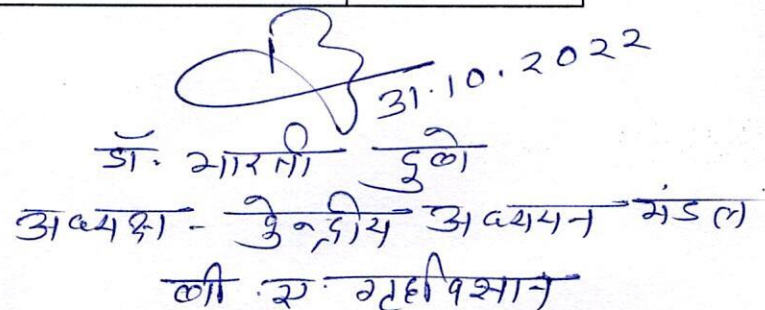 31.10.2022
डॉ. भारती दुबे
अध्यक्ष - केन्द्रीय अध्ययन मंडल
बी.ए. गृहविज्ञान